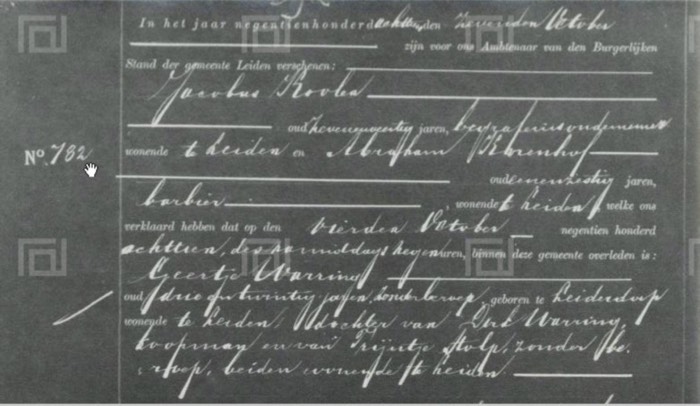 In het jaar negentienhonderd achttien, den zevenden October
zijn voor ons Ambtenaar van den Burgerlijken
Stand der gemeente Leiden verschenen:
Jacobus
oud zevenenveertig jaren, begrafenisondernemer
No. 782
wonende te Leiden en Abraham
oud eenenzestig jaren,
barbier, wonende te Leiden, welke ons
verklaard hebben dat op den vierden October negentien honderd
achttien, des voormiddags negen uren, binnen deze gemeente overleden is:
Geertje Warring
oud drie en twintig jaren, zonder beroep, geboren te Leiderdorp
wonende te Leiden, dochter van Dirk Warring,
koopman en van Trijntje Stolp, zonder be-
roep, beiden wonende te Leiden